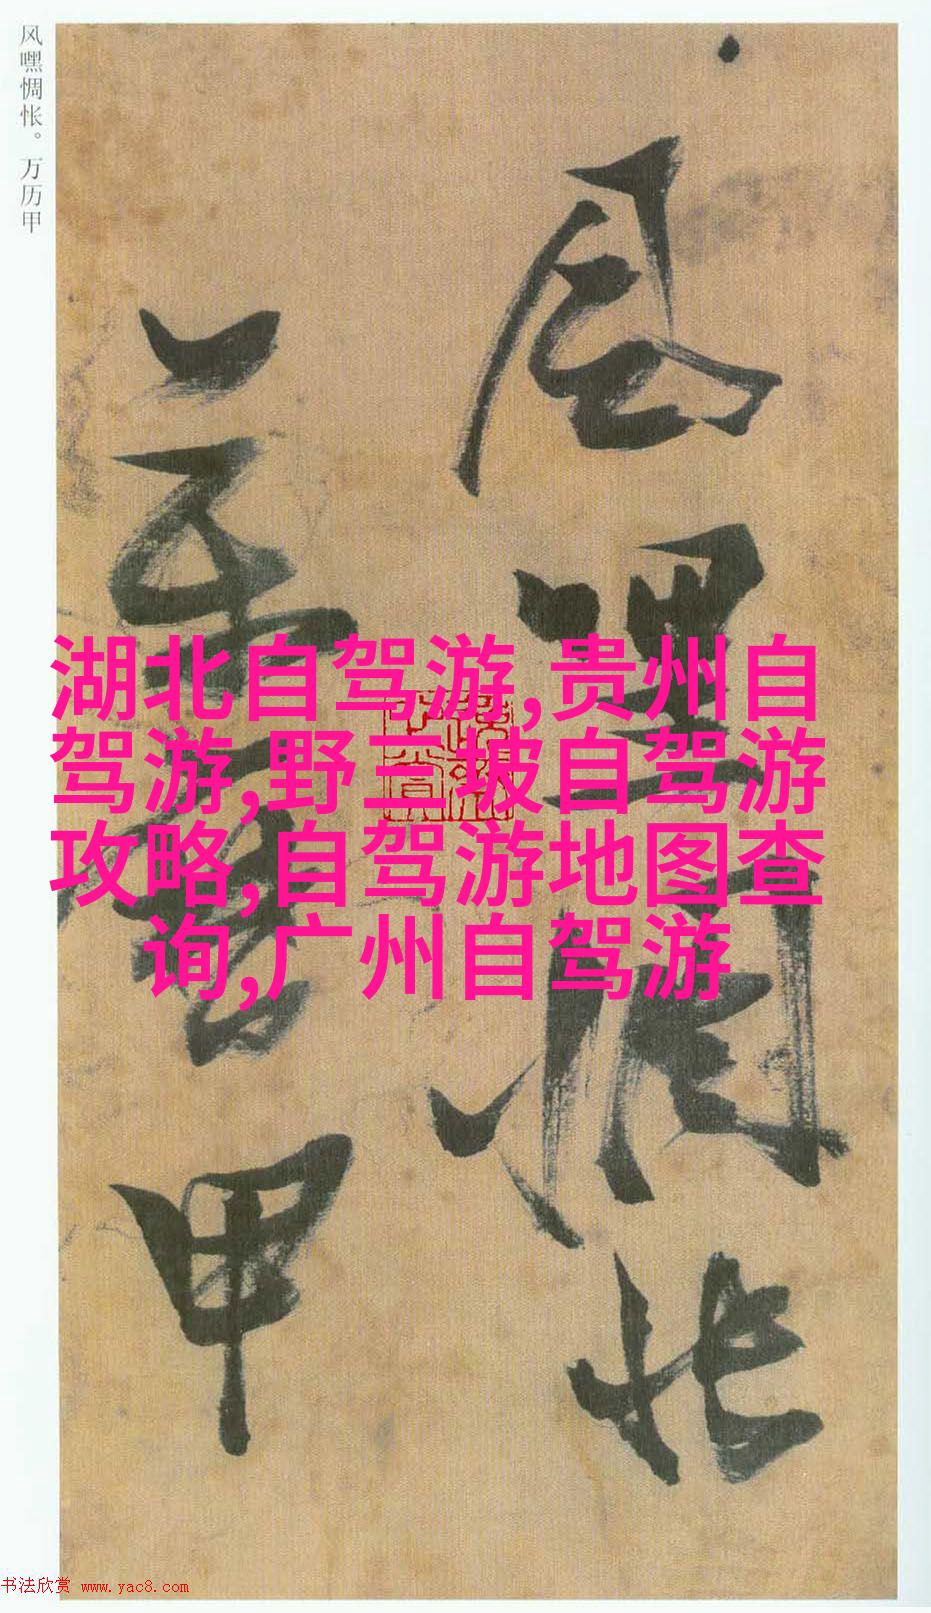 风嘿惆怅。万历甲
风嘿惆怅
万历甲
湖北自驾游,贵州自
驾游,野三坡自驾游
攻略,自驾游地图查
询,广州自驾游
书法欣赏 www.yac8.com